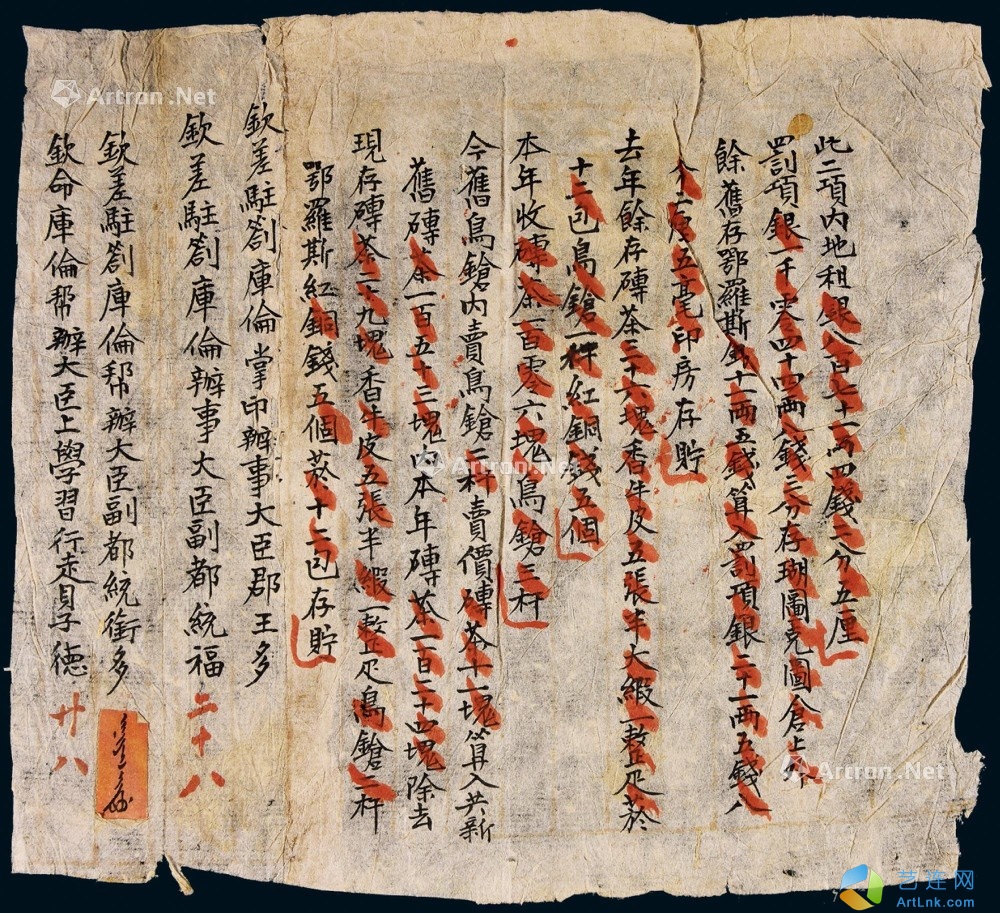 此二項內地租銀八百七十一兩四錢二分五厘
罰項銀一千零四十四兩八錢三分存瑚圖克圖倉上外
餘舊存鄂羅斯錢十一兩五錢算入罰項銀二十一兩五錢八
五毫印房存貯
去年餘存磚茶三十六塊香牛皮五張半大緞一整疋菸
十二包鳥鎗一杆紅銅錢五個
本年收磚茶一百零六塊鳥鎗三杆
今舊鳥鎗內賣鳥鎗二杆賣價磚茶十一塊算入共新
舊磚茶一百五十三塊內本年磚茶一百二十四塊除去
現存磚茶二十九塊香牛皮五張半緞一整疋鳥鎗二杆
鄂羅斯紅銅錢五個菸十二包存貯
欽差駐劄庫倫掌印辦事大臣郡王多
欽差駐劄庫倫辦事大臣副都統福 二十八
欽差駐劄庫倫幫辦大臣副都統銜多
欽命庫倫幫辦大臣上學習行走貝子德 廿八
Artron.Net
Artron.Net
Artron.Net
艺连网
ArtLnk.com